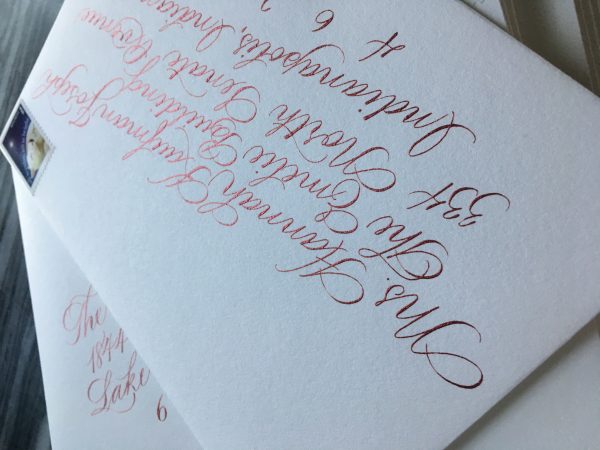 Ms. Hannah Kaufman Joseph
The Emelie Building
334 North Senate Avenue
Indianapolis, Indiana
4 6
The
1844
Lake
6